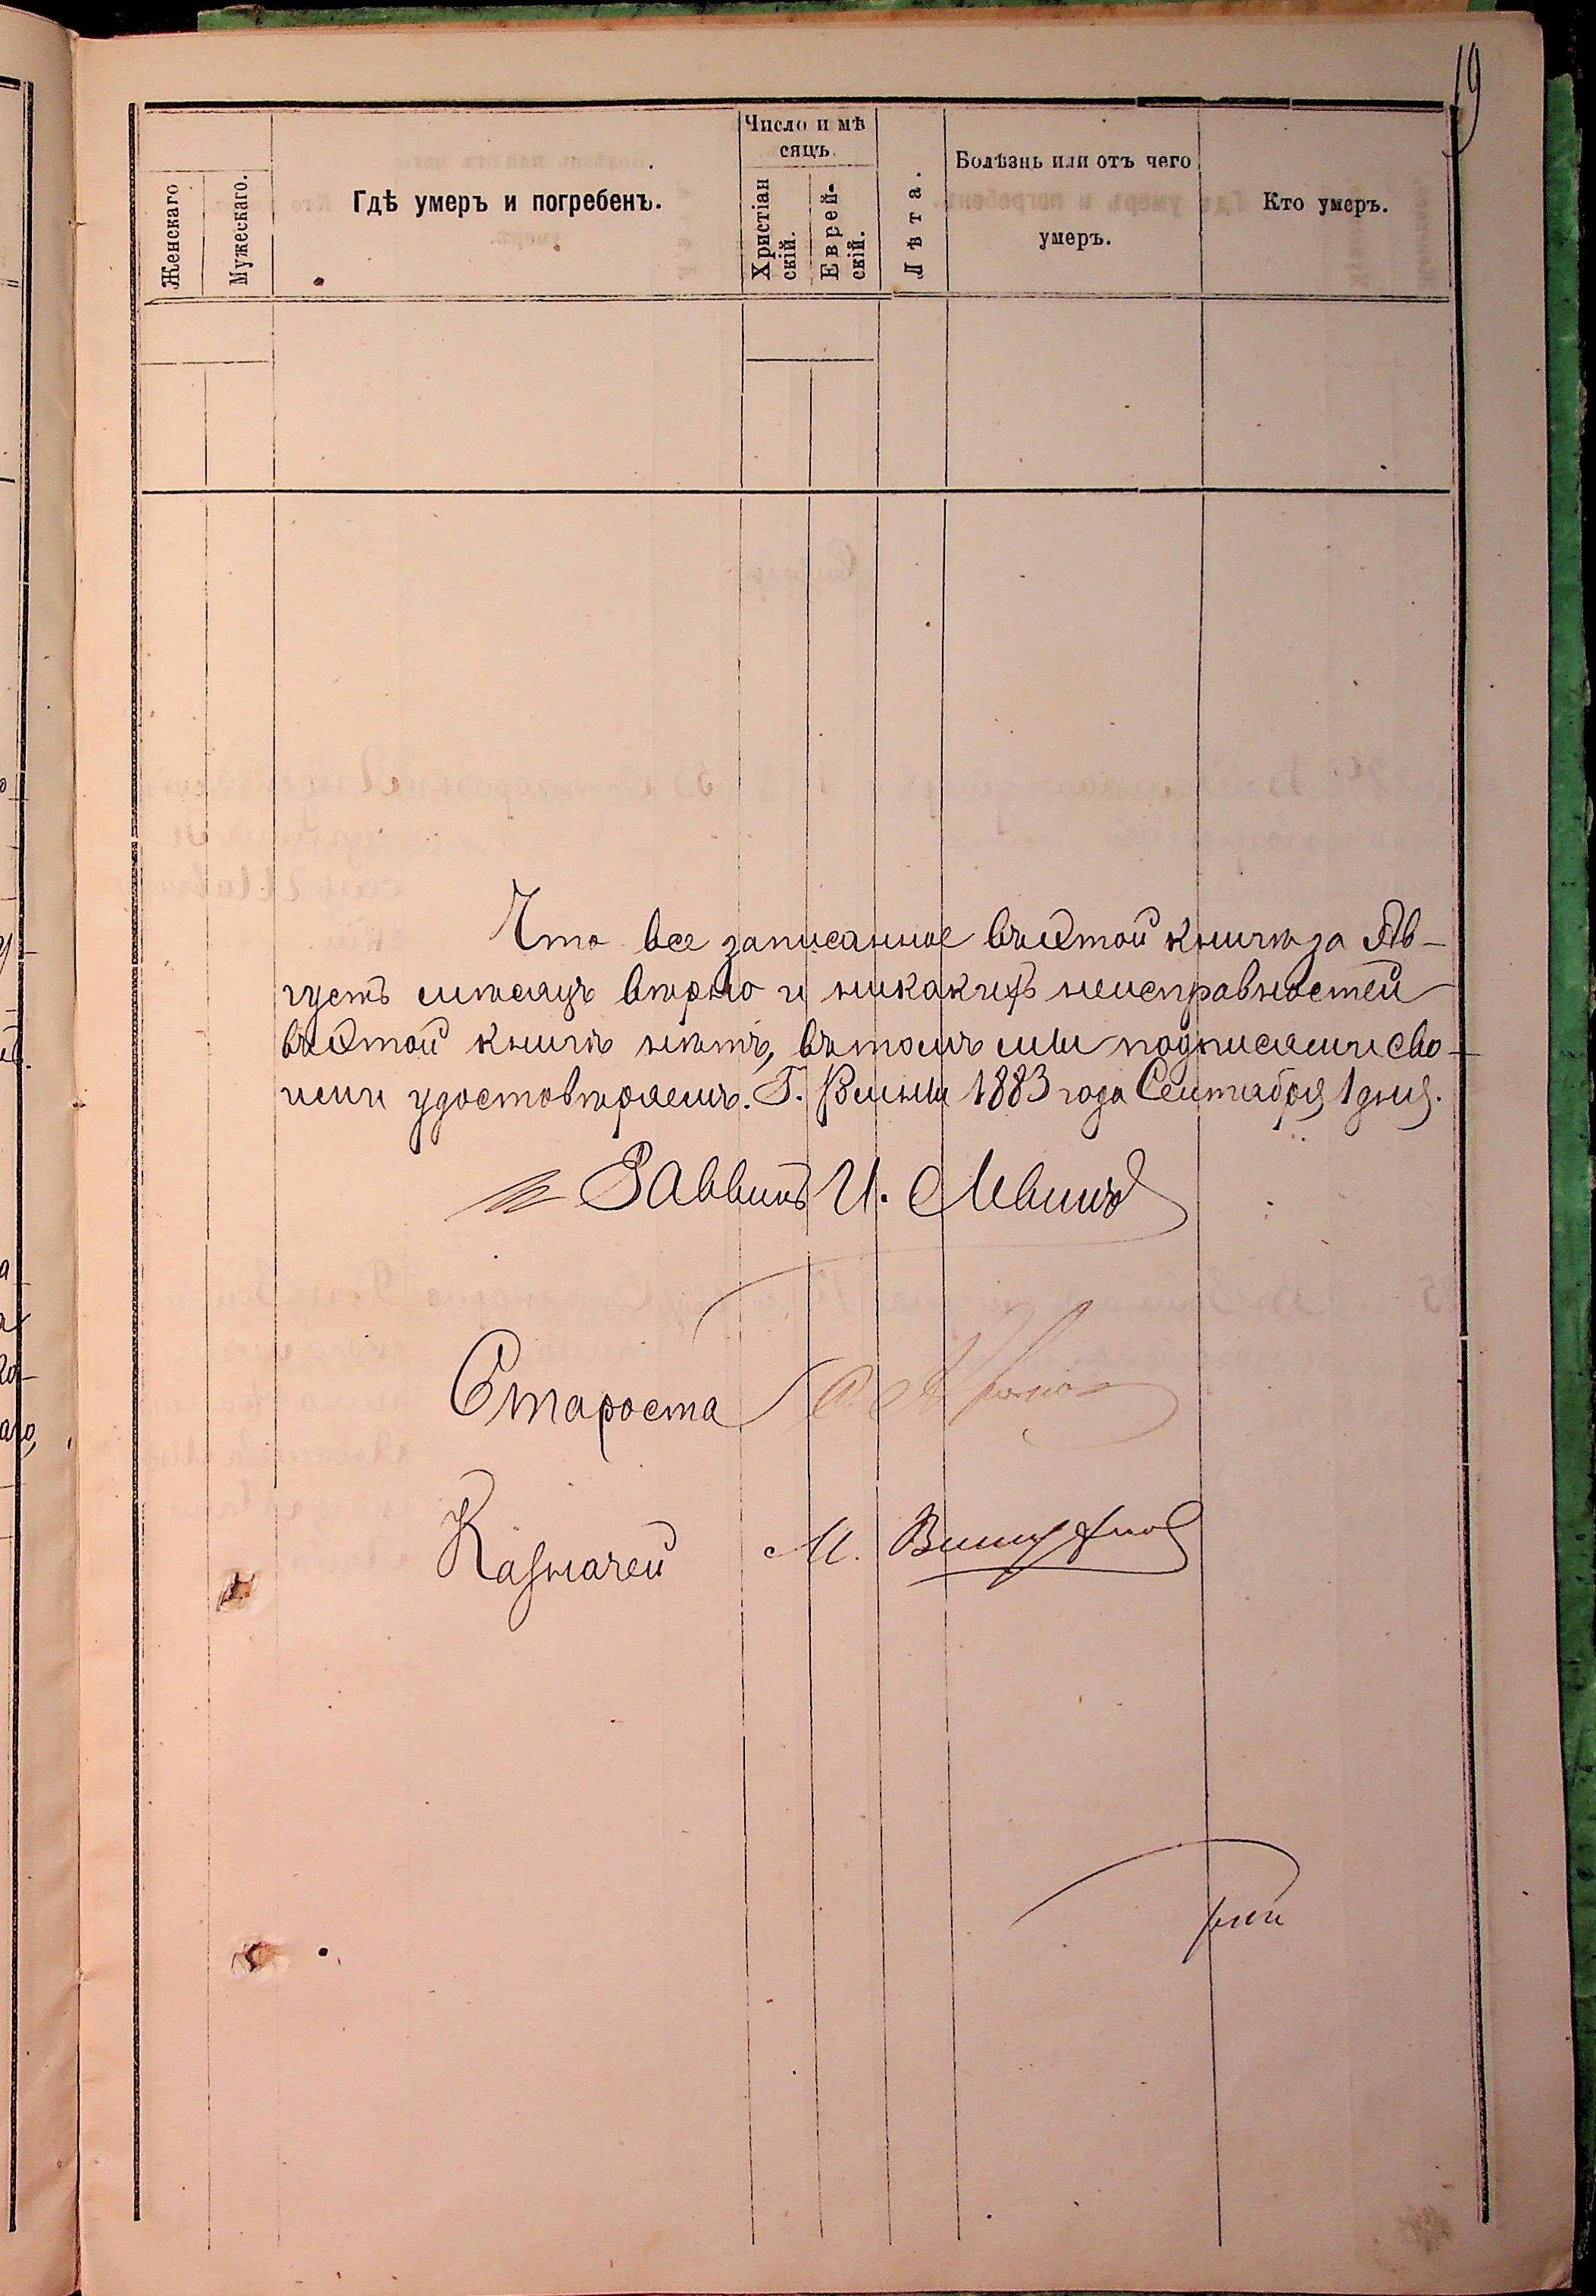 19
Число и мѣ
сяцъ.
Женскаго
Мужескаго.
Гдѣ умеръ и погребенъ.
Христіан
скій.
Еврей-
скій.
Лѣта.
Болѣзнь или отъ чего
умеръ.
Кто умеръ.
Что все записанное въ этой книгѣ за Ав-
густъ мѣсяцъ вѣрно и никакихъ неисправностей
въ этой книгѣ нѣтъ, въ томъ мы подписями сво-
ими удостовѣряемъ. Г. 1883 года Сентября 1 дня.
Раввинъ И. Левинъ
Староста
Казначей М.